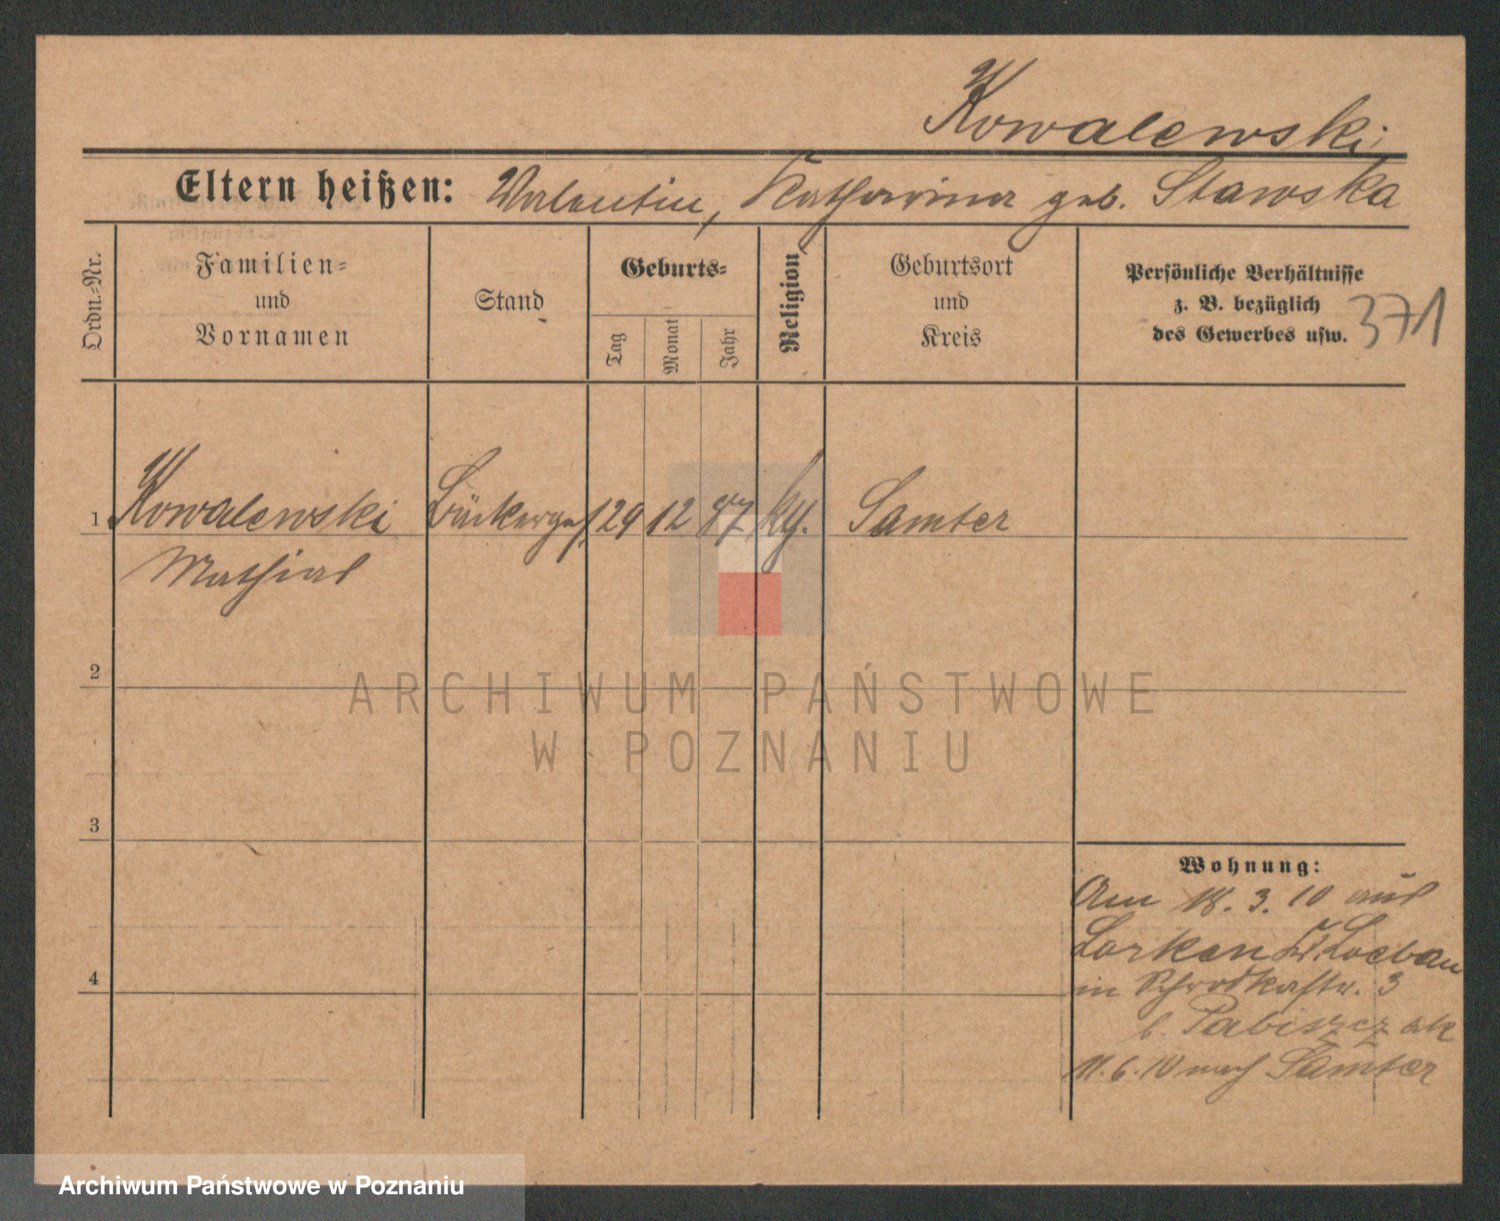 Kowalewski
Eltern heißen: Valentin, Katharina geb. Stawska
Ordn.-Nr.
Familien- und Vornamen
Stand
Geburts-
Tag
Monat
Jahr
Religion
Geburtsort und Kreis
Persönliche Verhältnisse
z. B. bezüglich
des Gewerbes usw.
371
1 Kowalewski Bäckerges. 29 12 87 kg. Samter
Mathias
2
3
4
Wohnung:
Am 18. 3. 10 aus
Lorken Kr. Loebau
in Schrodkastr. 3
b. Pabiszcz ab
11. 6. 10 nach Samter
ARCHIWUM PAŃSTWOWE
W POZNANIU
Archiwum Państwowe w Poznaniu